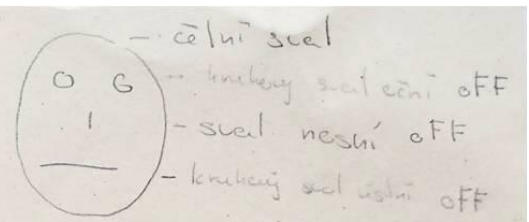 - čelní sval
- kruhový sval oční OFF
- sval nosní OFF
- kruhový sval ústní OFF